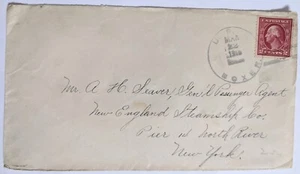 MAR
Mr. A. H. Seaver, Gen'l Passenger Agent
New England Steamship Co.
Pier 14 North River
New York.